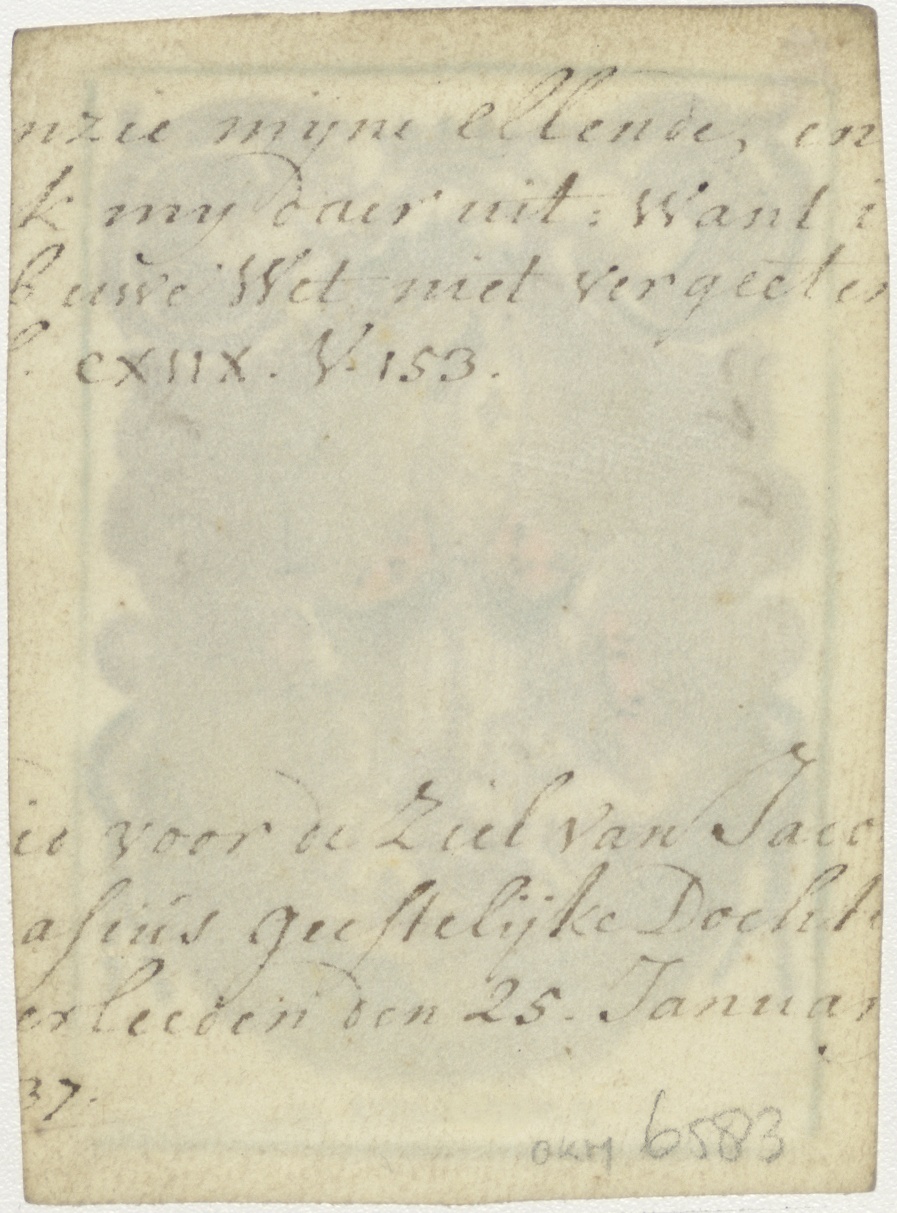 nzie myne ellende, en
k my daer uit: Want i
b uwe Wet niet vergeeten
l. cxiix. V. 153.
id voor de Ziel van Jaco
asius geestelijke Dochte
erleeden den 25. Januar
37.
OKM 6583